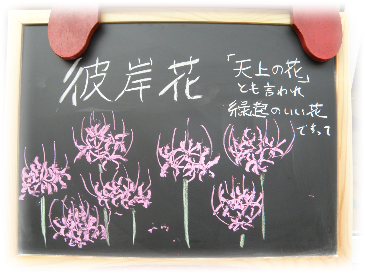 彼岸花
「天上の花」
とも言われ
縁起のいい花
ですって